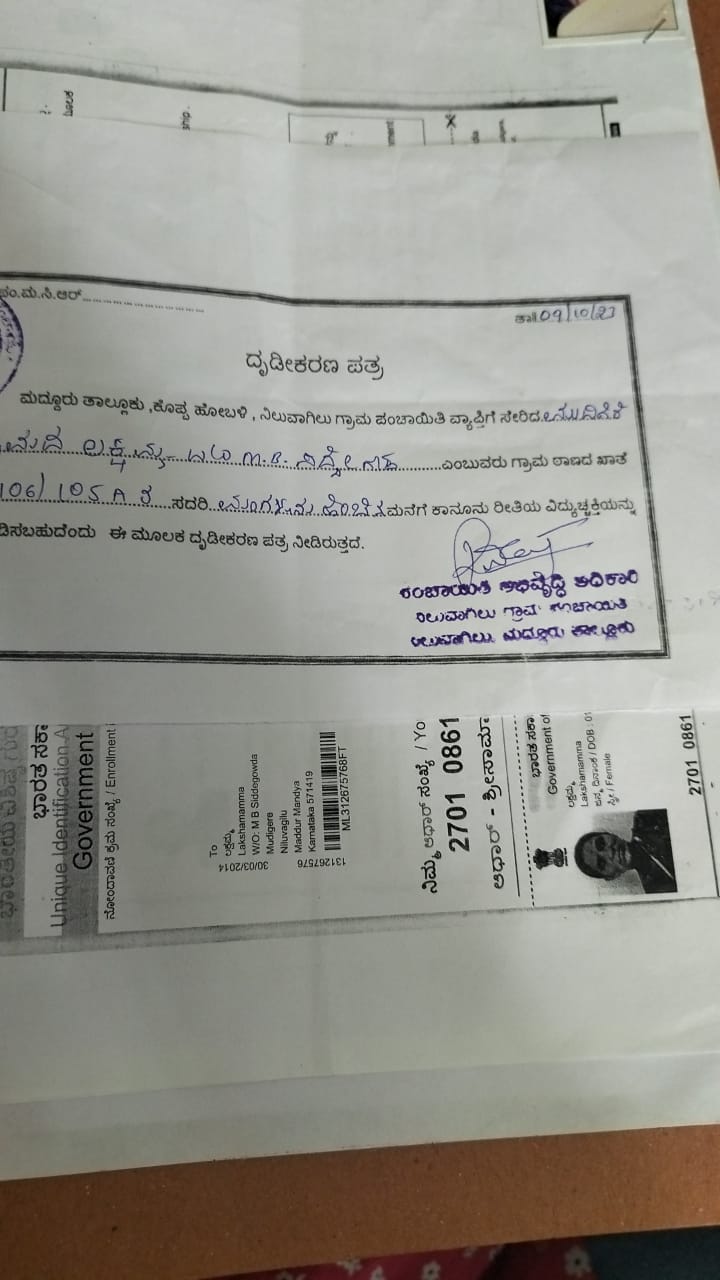 ship.
ಪಂ.ಮ.ಸಿ.ಆರ್........................
ತಾ॥ 09/10/23
ದೃಢೀಕರಣ ಪತ್ರ
ಮದ್ದೂರು ತಾಲ್ಲೂಕು ,ಕೊಪ್ಪ ಹೋಬಳಿ , ನಿಲುವಾಗಿಲು ಗ್ರಾಮ ಪಂಚಾಯಿತಿ ವ್ಯಾಪ್ತಿಗೆ ಸೇರಿದ
ಲಕ್ಷ್ಮಮ್ಮ M.B. ಸಿದ್ದೇಗೌಡ ಎಂಬುವರು ಗ್ರಾಮ ಠಾಣದ ಖಾತೆ
106/105A ರ ಸದರಿ ಮನೆಗೆ ಕಾನೂನು ರೀತಿಯ ವಿದ್ಯುಚ್ಚಕ್ತಿಯನ್ನು
ಡಿಸಬಹುದೆಂದು ಈ ಮೂಲಕ ದೃಡೀಕರಣ ಪತ್ರ ನೀಡಿರುತ್ತದೆ.
ಪಂಚಾಯಿತಿ ಅಭಿವೃದ್ಧಿ ಅಧಿಕಾರಿ
ನಿಲುವಾಗಿಲು ಗ್ರಾಮ ಪಂಚಾಯಿತಿ
ನಿಲುವಾಗಿಲು, ಮದ್ದೂರು ತಾಲ್ಲೂಕು
ಭಾರತ ಸರ್ಕಾ
Unique Identification A
Government
ನೋಂದಾವಣೆ ಕ್ರಮ ಸಂಖ್ಯೆ / Enrollment
To
ಲಕ್ಷಮ್ಮ
Lakshamamma
W/O: M B Siddegowda
Mudigere
Niluvagilu
Maddur Mandya
Karnataka 571419
30/03/2014
131267576
ML312675768FT
ನಿಮ್ಮ ಆಧಾರ್ ಸಂಖ್ಯೆ / Yo
2701 0861
ಆಧಾರ್ - ಶ್ರೀಸಾಮಾ
ಭಾರತ ಸರ್ಕಾ
Government of
ಲಕ್ಷಮ್ಮ
Lakshamamma
ಜನ್ಮ ದಿನಾಂಕ / DOB : 01
ಸ್ತ್ರೀ / Female
2701 0861